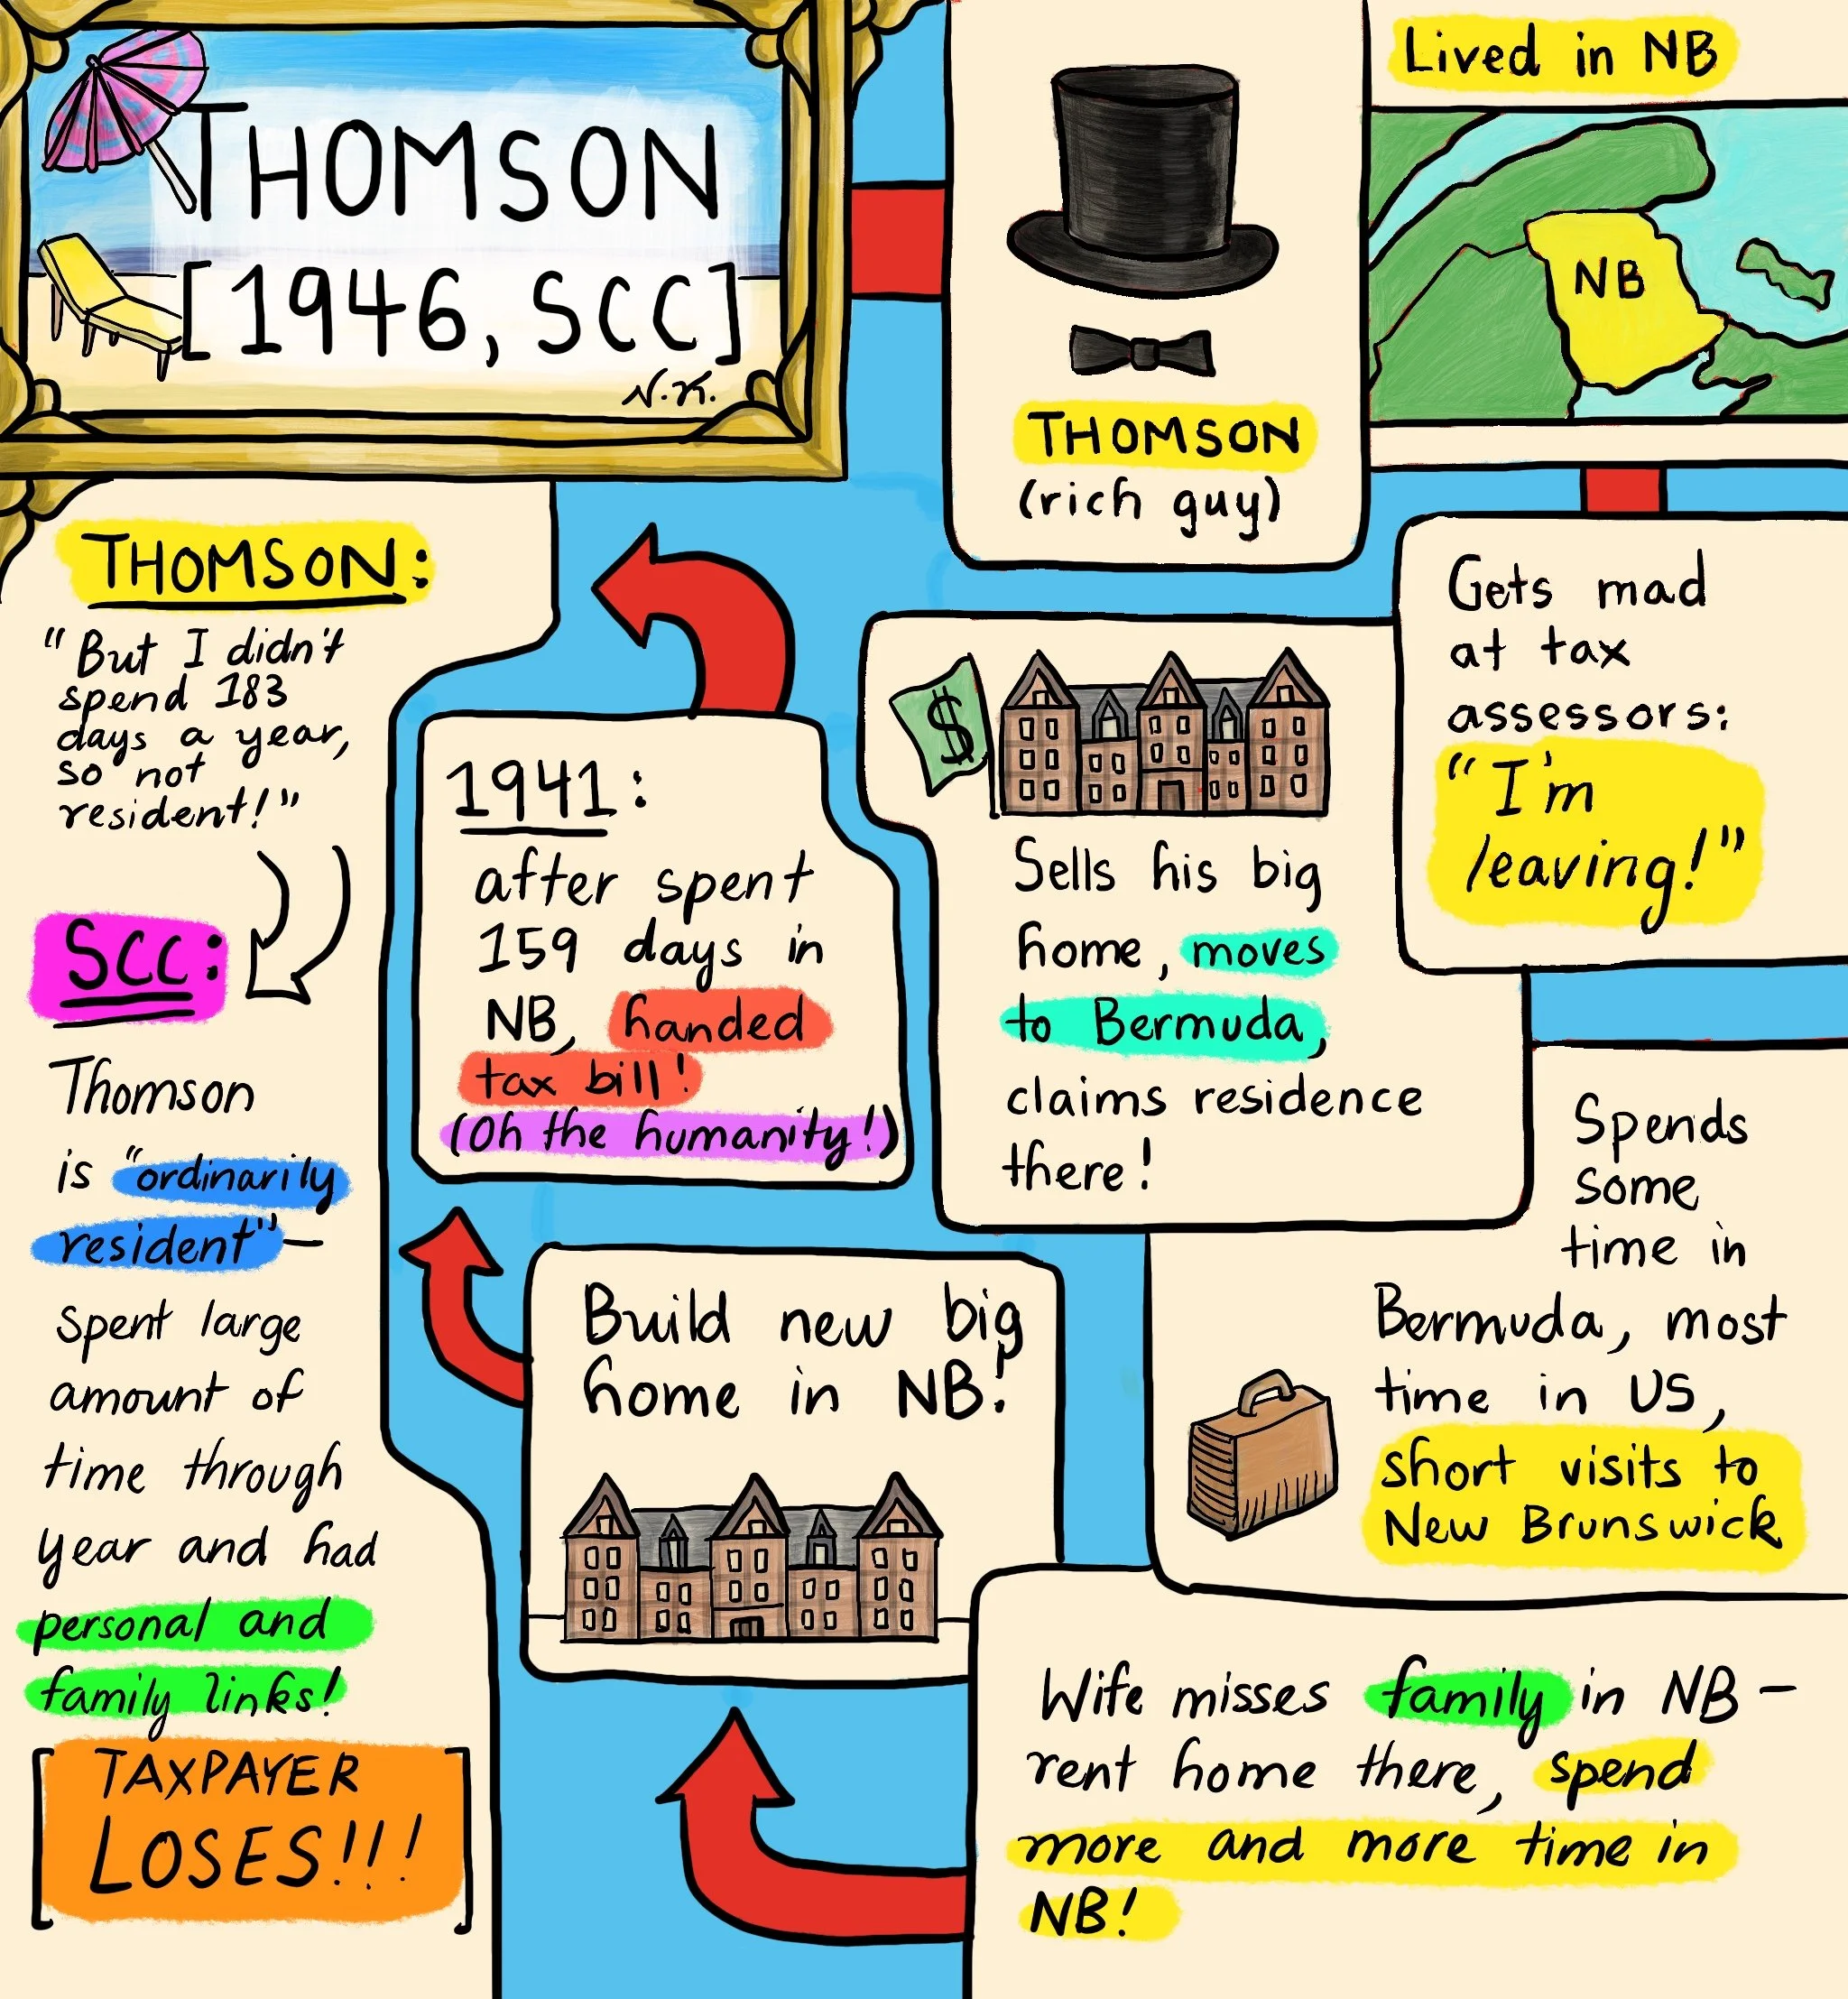 THOMSON
[1946, SCC]
N.K.
THOMSON
(rich guy)
Lived in NB
NB
Gets mad
at tax
assessors:
"I'm
leaving!"
$
Sells his big
home, moves
to Bermuda,
claims residence
there!
Spends
some
time in
Bermuda, most
time in US,
short visits to
New Brunswick
Wife misses family in NB-
rent home there, spend
more and more time in
NB!
Build new big
home in NB!
1941:
after spent
159 days in
NB, handed
tax bill!
(Oh the humanity!)
THOMSON:
"But I didn't
spend 183
days a year,
so not
resident!"
SCC:
Thomson
is "ordinarily
resident"-
spent large
amount of
time through
year and had
personal and
family links!
[TAXPAYER
LOSES!!!]